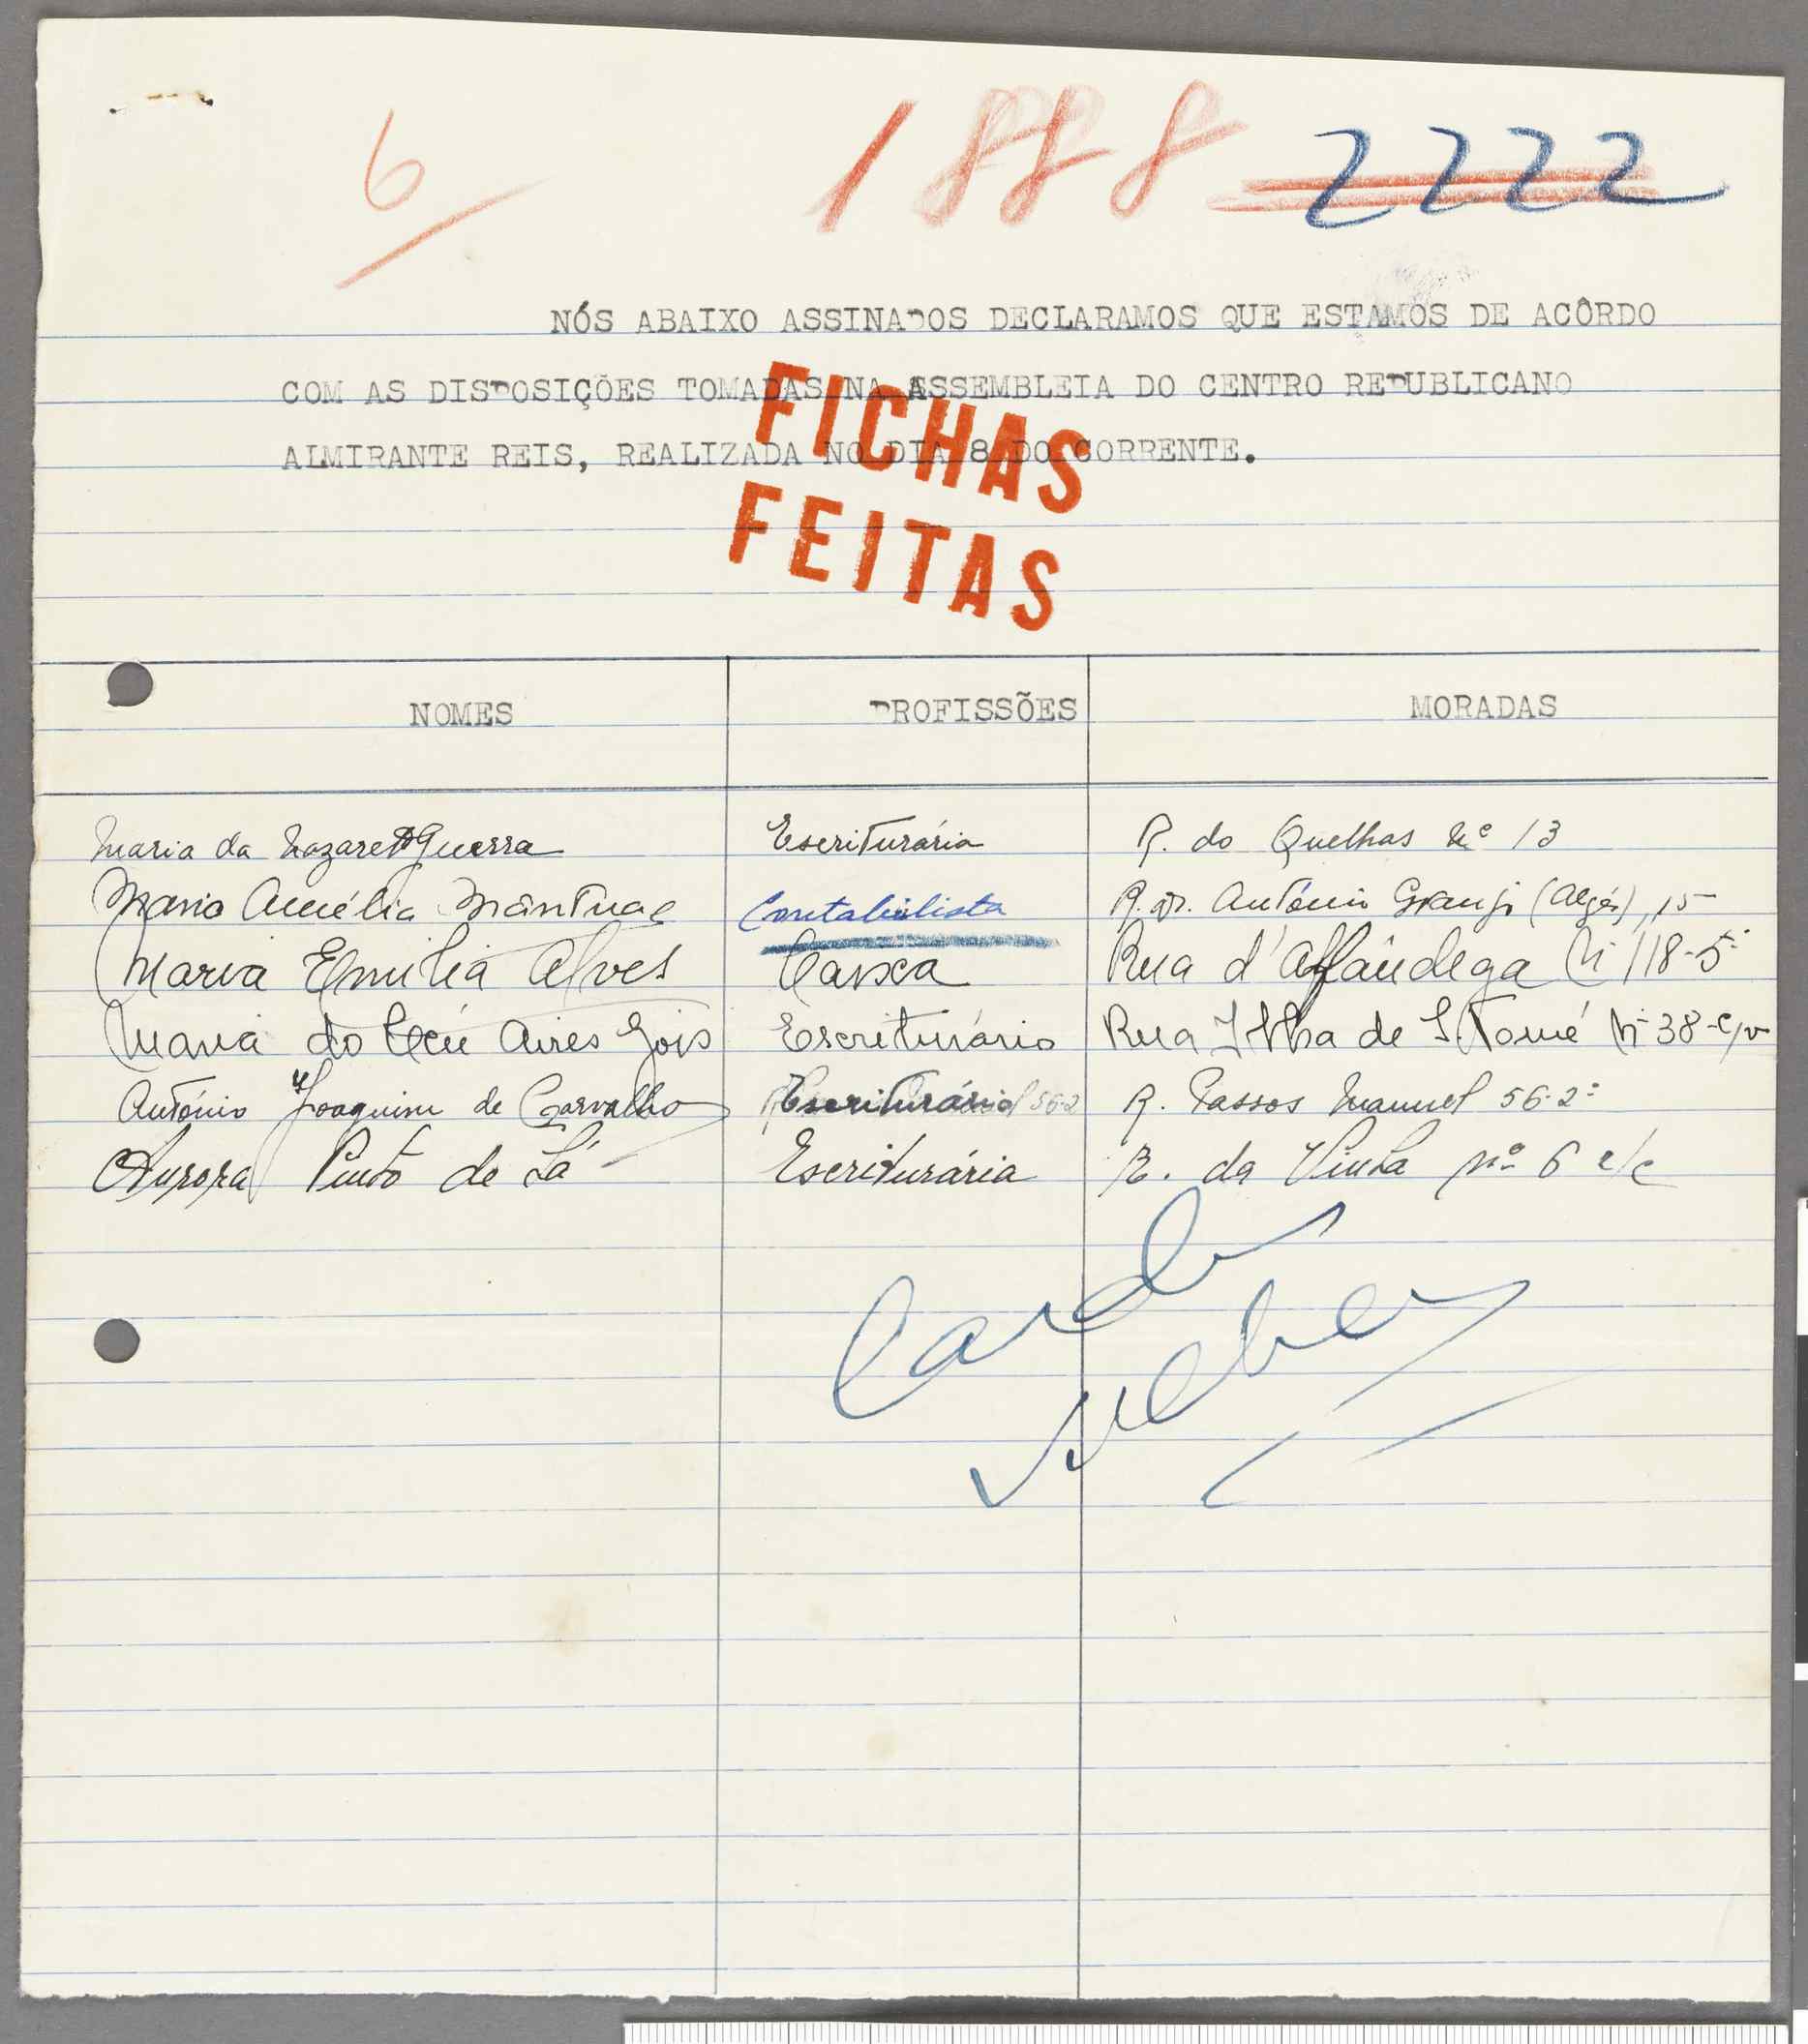 6 1888 2222
NÓS ABAIXO ASSINADOS DECLARAMOS QUE ESTAMOS DE ACÔRDO
COM AS DISPOSIÇÕES TOMADAS NA ASSEMBLEIA DO CENTRO REPUBLICANO
ALMIRANTE REIS, REALIZADA NO DIA 8 DO CORRENTE.
FICHAS
FEITAS
NOMES PROFISSÕES MORADAS
Maria da Nazareth Guerra Escriturária R. do Quelhas Nº 13
Maria Amélia Mântua Contabilista R. Dr. António Granjo (Algés), 15
Maria Emilia Alves Caixa Rua d'Alfândega Nº 118-5º
Maria do Céu Aires Gois Escriturário Rua Ilha de S. Tomé Nº 38-c/v
António Joaquim de Carvalho Escriturário R. Passos Manuel 56-2º
Aurora Pinto de Sá Escriturária R. da Vinha nº 6 r/c